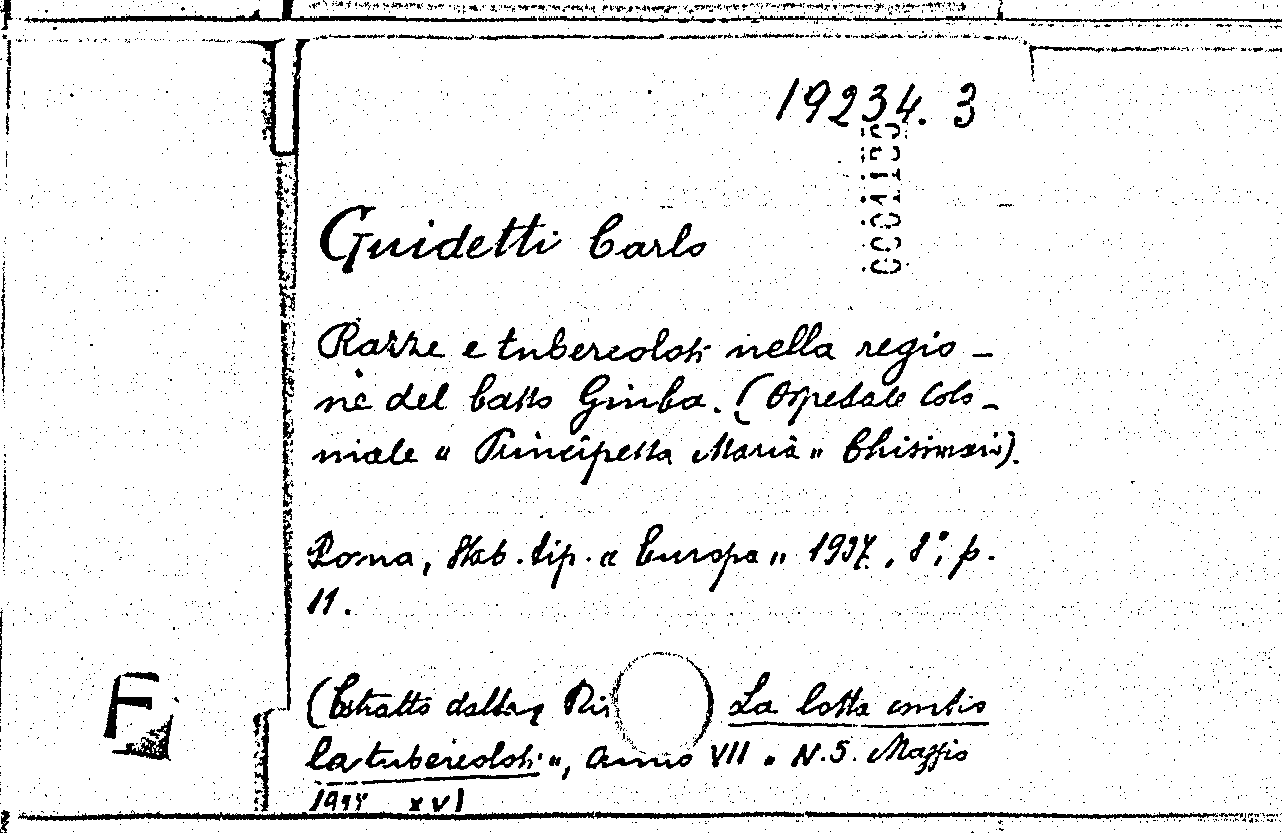 19234. 3
0001186
Guidetti Carlo
Razze e tubercolosi nella regio-
ne del basso Giuba. (Ospedale Colo-
niale "Principessa Maria" Chisimaio).
Roma, Stab. tip. "Europa" 1937, 8°, p.
11.
(Estratto dalla Ri La lotta contro
la tubercolosi", Anno VII. N. 5. Maggio
XVI
F